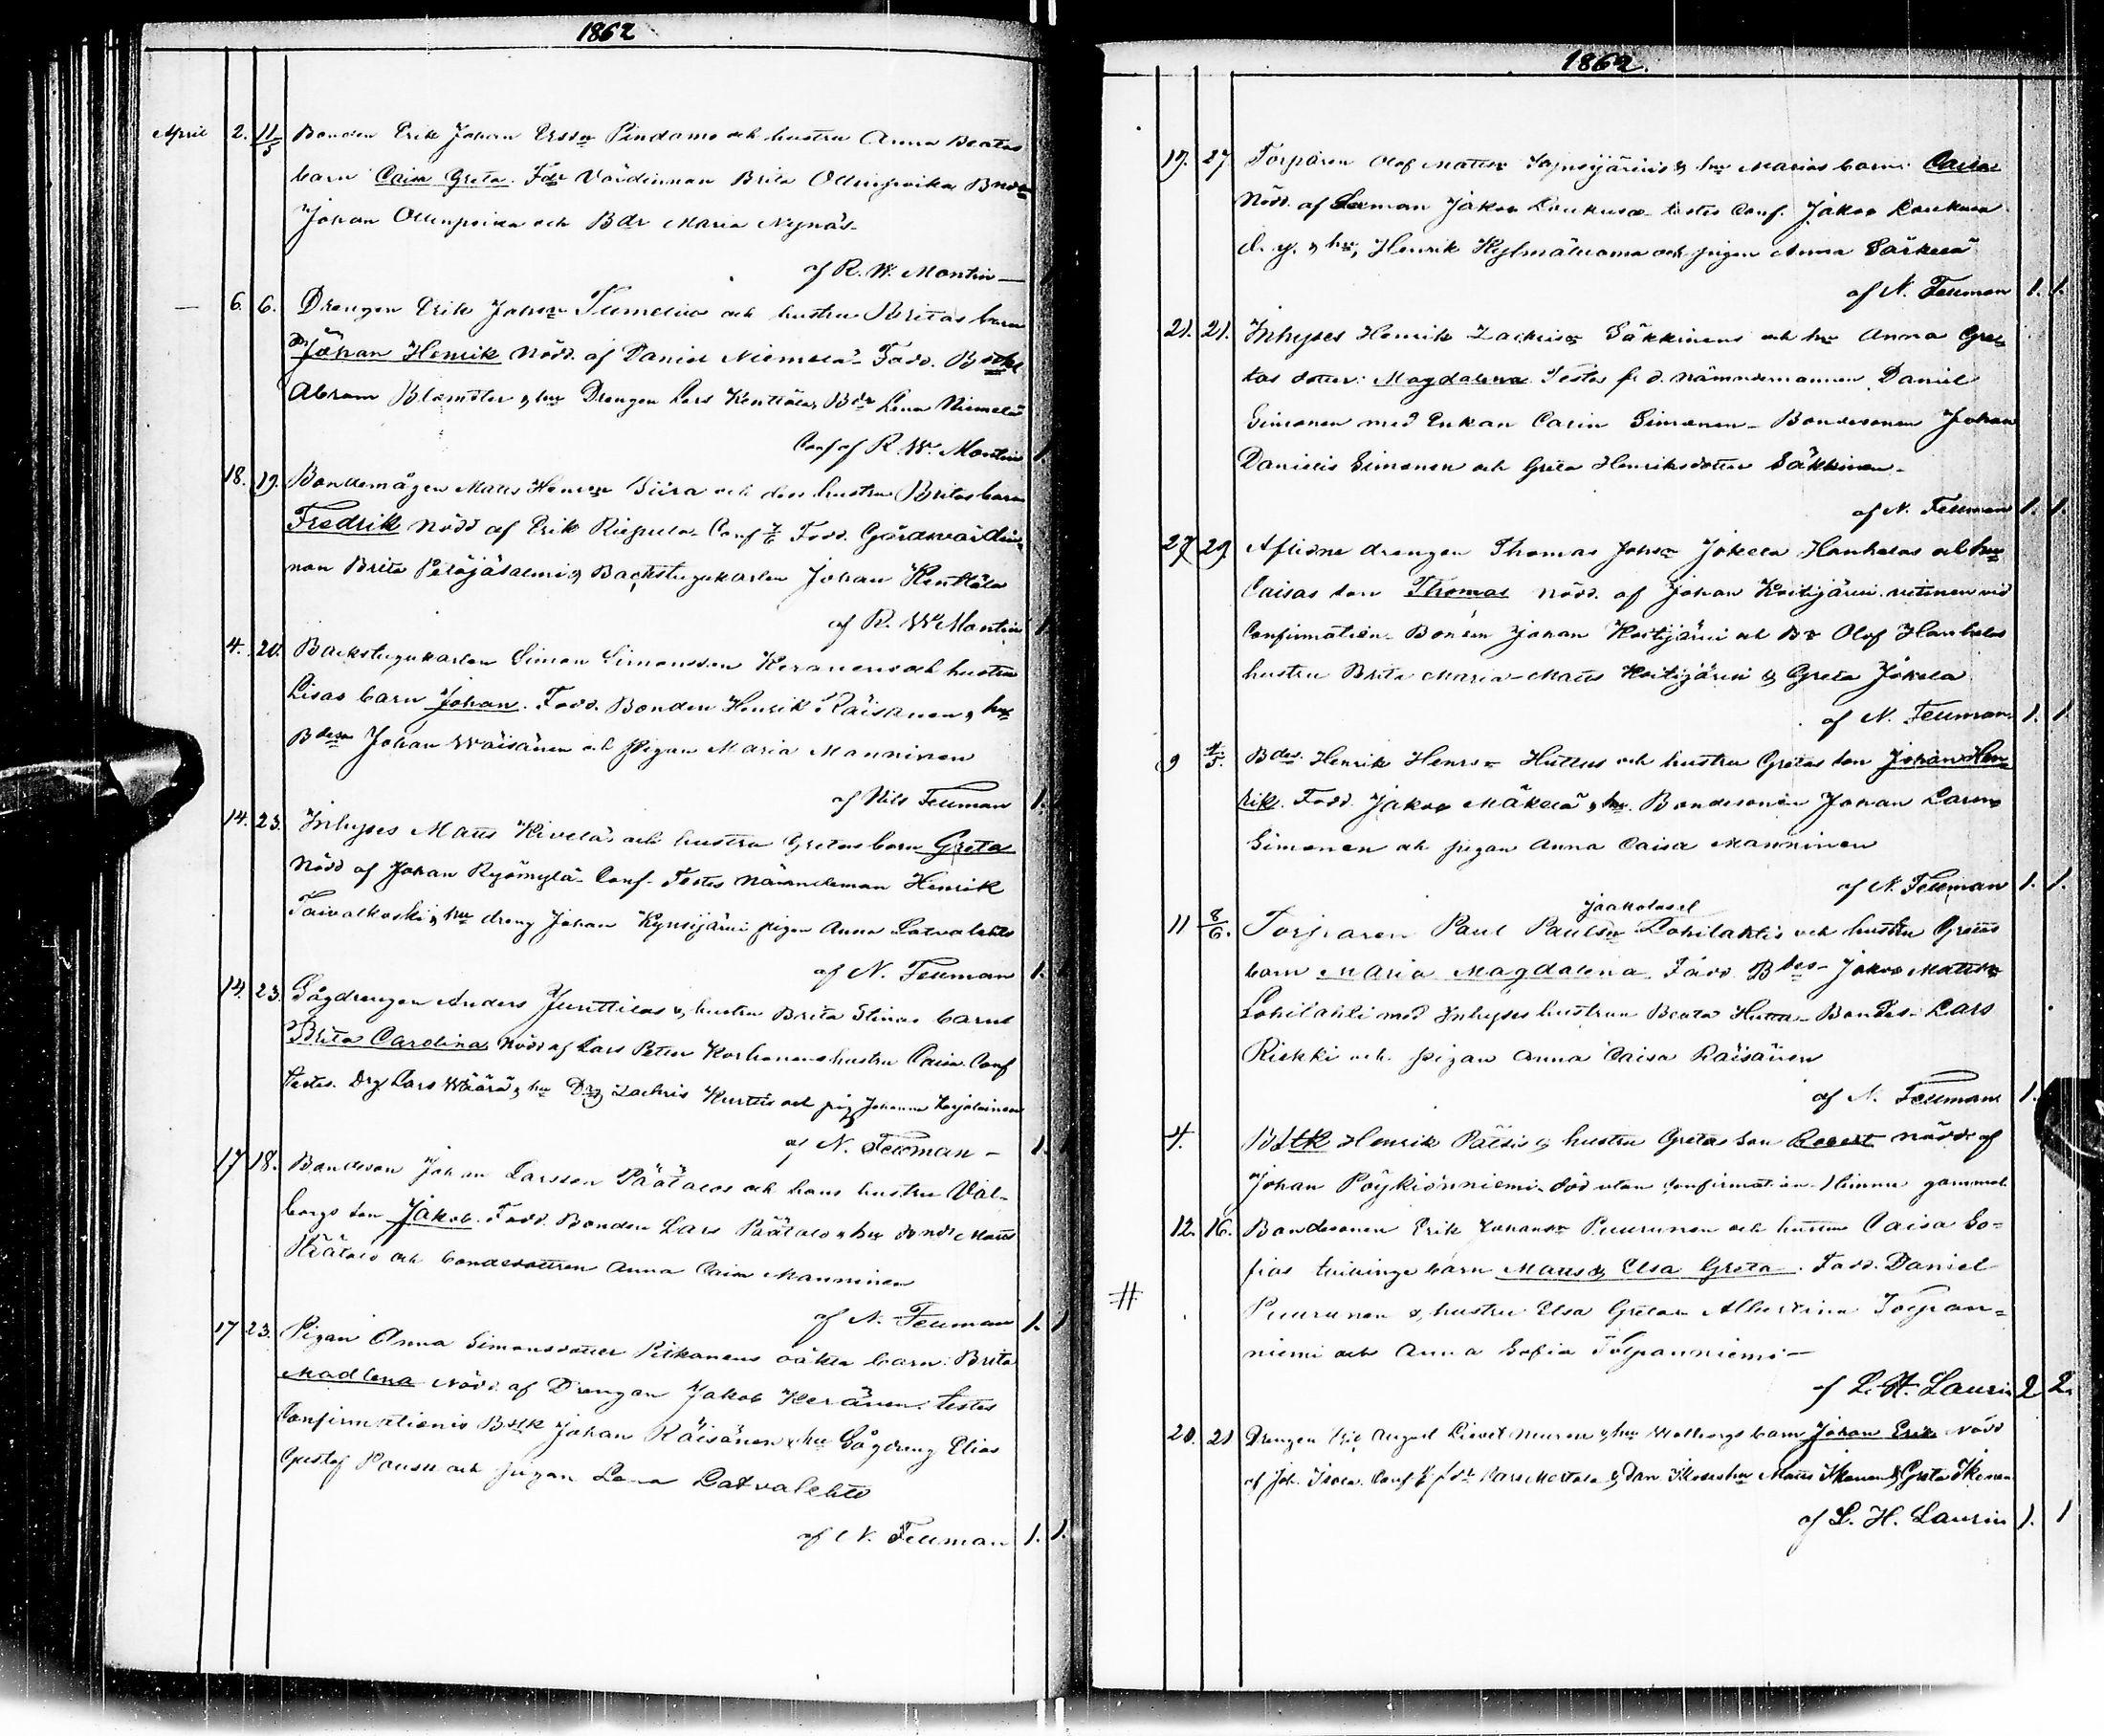 1862
April 2. 11/5 Bonden Erik Johan Ersson Pindamo och hustru Anna Beatas
barn Caisa Greta. Fdr Värdinnan Brita Ollinpoika Bndsn
Johan Ollinpoika och Bdr Maria Nygnäs
af R. W. Montin
6. 6. Drengen Erik Johsn Tumelius och hustru Britas barn
Johan Henrik nödd. af Daniel Niemelä. Fadd. Bstkl
Abram Blomster & hu Drengen Lars Kenttälä, Bdr Lena Niemelä
Conf af R. W. Montin 1
18. 19. Bondemågen Matts Henrsn Siira och dess hustru Britas barn
Fredrik nödd af Erik Riepula. Conf 7/6 Fadd. Gårdsvärdin-
nan Brita Peräjäsalmi & Backstugukarlen Johan Kenttälä
af R. W. Montin 1
4. 20. Backstugukarlen Simon Simonsson Keränens och hustru
Lisas barn Johan. Fadd. Bonden Henrik Räisänen & hu
Bdeson Johan Wäisänen och Pigan Maria Manninen
af Nils Fellman 1.
14. 23. Inhyses Matts Kiveläs och hustru Gretas barn Greta
Nödd af Johan Ryömylä. Conf. Testes nämndeman Henrik
Taivalkoski & hu dreng Johan Kynsijärvi pigan Anna Latvalehto
af N. Fellman 1.
14. 23. Sågdrengen Anders Juntticas & hustru Brita Stinas barn
Brita Carolina nödd af Lars Petter Korhonens hustru Caisa. Conf
testes. Drg Lars Määrä & hu Drg Zachris Kurttis och pig Johanna Karjalainen
af N. Fellman 1
17 18. Bondeson Johan Larsson Päätalos och hans hustru Val-
borgs son Jakob. Fadd. Bonden Lars Päätalo & hu Bonde Matts
Päätalo och bondedottren Anna Caisa Manninen
af N. Fellman 1. 1
17 23. Pigan Anna Simonsdotter Pitkänens oäkta barn: Brita
Madlena Nödd. af Drengen Jakob Keränen. testes
Confirmationis Bstk Johan Räisänen & hu Sågdreng Elias
Gustaf Pausu och pigan Lena Latvalehto
af N. Fellman 1. 1.
1862.
19. 27 Torparen Olof Mattsn Kynsijärvis & hu Marias barn: Caisa
Nödd. af Jakob Loukusa testes Conf. Jakob Loukusa
d. y. & hu, Henrik Hylmäluoma och pigan Anna Särkelä
af N. Fellman 1. 1.
21. 21. Inhyses Henrik Zachrisn Säkkinens och hu Anna Gre-
tas dotter: Magdalena Testes f. d. nämndemannen Daniel
Simonen med Enkan Carin Simonen. Bondesonen Johan
Danielis Simonen och Greta Henriksdotter Säkkinen.
af N. Fellman 1. 1.
27 29 Aflidne drengen Thomas Johsn Jokela Hanhelas och hu
Caisas son Thomas nödd. af Johan Koitijärvi. vittnen vid
Confirmation. Bonden Johan Koitijärvi och Br Olof Hanhelas
hustru Brita Maria. Matts Koitijärvi & Greta Jokela
af N. Fellman 1. 1
9 4/5. Bdes. Henrik Henrsn Huttus och hustru Gretas son Johan Hen-
rik. Fadd. Jakob Mäkelä & hu. Bondesonen Johan Larsn
Simonen och pigan Anna Caisa Manninen
af N. Fellman 1. 1.
Jaakolasel
11 8/6. Torparen Paul Paulsn Lohilahtis och hustru Gretas
barn Maria Magdalena Fadd. Bdes. Jakob Mattsn
Lohilahti med Inhyses hustrun Beata Huttu. Bondes. Lars
Riekki och pigan Anna Caisa Räisänen
af N. Fellman 1.
4. Bstk Henrik Pätsis & hustru Gretas son Robert nödd af
Johan Pöykiönniemi. död utan Confirmation timme gammal
12. 16. Bondesonen Erik Johansn Puurunen och hustru Caisa So-
fias tvillinge barn Matts & Elsa Greta. Fadd. Daniel
# Puurunen & hustru Elsa Greta. Albertina Tolpan-
niemi och Anna Sofia Tolpanniemi
af L. H. Laurin 2 2.
20. 21 Drengen Erik August & hu Walborgs barn Johan Erik Nödd
af Joh. Isola. Conf Lars Mertala & Dan. hu Matts Ikonen & Greta Ikonen
af L. H. Laurin 1. 1